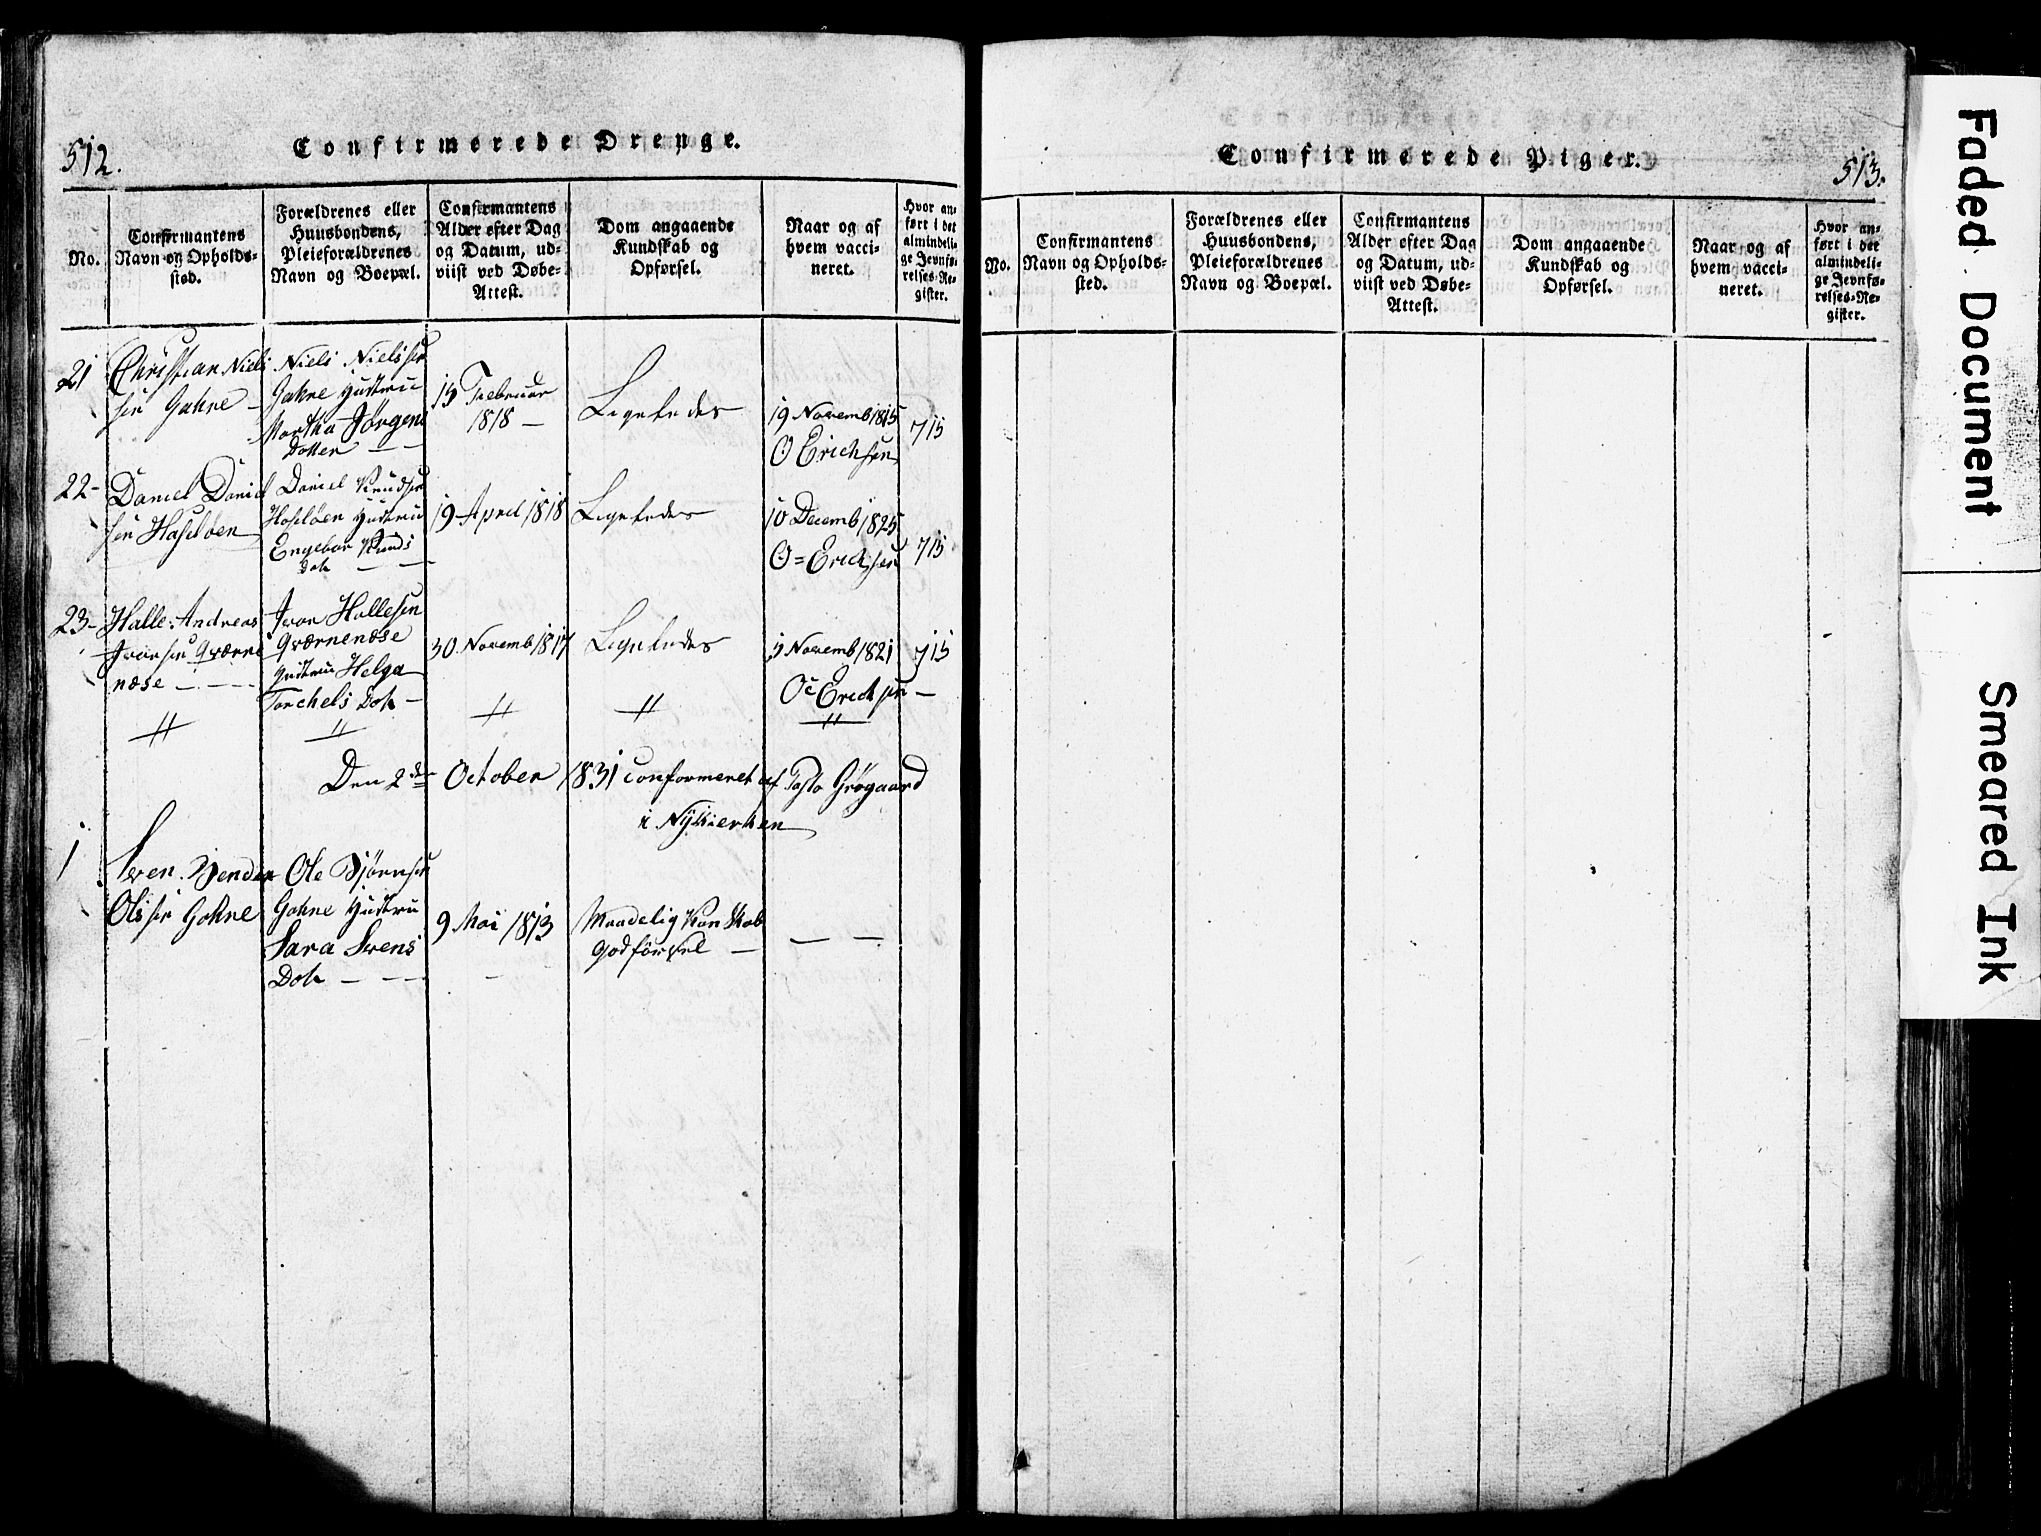 512.
Confirmerede Drenge.
No.
Confirmantens
Navn og Opholds-
sted.
Forældrenes eller
Huusbondens,
Pleieforældrenes
Navn og Boepæl.
Confirmantens
Alder efter Dag
og Datum, ud-
viist ved Døbe-
Attest.
Dom angaaende
Kundskab og
Opførsel.
Naar og af
hvem vacci-
neret.
Hvor an-
ført i det
almindeli-
ge Jevnfø-
relses-Re-
gister.
21
Christian Niels
sen Gahre -
Niels Nielssen
Gahre Hustru
Martha Jørgens
Dotter - -
15 Februar
1818 -
Ligeledes
19 Novemb 1815
O Erichsen
715
22-
Daniel Daniel
sen Haseløen
Daniel Knudsen
Haseløen Hustru
Engebor Knuds
Dotr - -
19 April 1818
Ligeledes
10 Decemb 1825
O = Erichsen
715
23-
Halle Andreas
Ivarsen Qværne
næse - - -
Ivar Hallesen
Qværnenæse
Hustru Helga
Torchels Dotr -
30 Novemb 1817
Ligeledes
5 Novemb 1821
Oe Erichsen -
715
// // // // //
Den 2den October 1831 conformeret af Pasto Grøgaard
i Nykierken
1
Sven
Olsen Gahre
Ole Bjørnsen
Gahre Hustru
Sara Svens
Dotr - - -
9 Mai 1813
-
Maadelig Kunskab
God förssel -
- -
Confirmerede Piger.
513.
No.
Confirmantens
Navn og Opholds-
sted.
Forældrenes eller
Huusbondens,
Pleieforældrenes
Navn og Boepæl.
Confirmantens
Alder efter Dag
og Datum, ud-
viist ved Døbe-
Attest.
Dom angaaende
Kundskab og
Opførsel.
Naar og af
hvem vacci-
neret.
Hvor an-
ført i det
almindeli-
ge Jevnfø-
relses-Re-
gister.
Faded Document
Smeared Ink